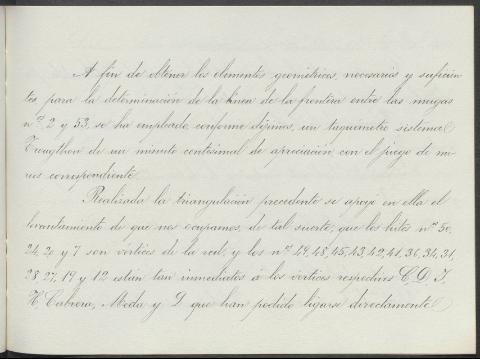 A fin de obtener los elementos geométricos, necesarios y suficien
tes, para la determinación de la línea de la frontera entre las mugas
nos 2 y 53, se ha empleado, conforme dijimos, un taquímetro sistema
de un minuto centesimal de apreciación, con el juego de mi
ras correspondiente.
Realizada la triangulación precedente se apoyó en ella el
levantamiento de que nos ocupamos, de tal suerte, que los hitos nos 50,
24, 20 y 7 son vértices de la red, y los nos 49, 48, 45, 43, 42, 41, 36, 34, 31,
28, 27, 19 y 12 están tan inmediatos á los vértices respectivos C, D, I,
H, Cabrera, Meda y L que han podido ligarse directamente